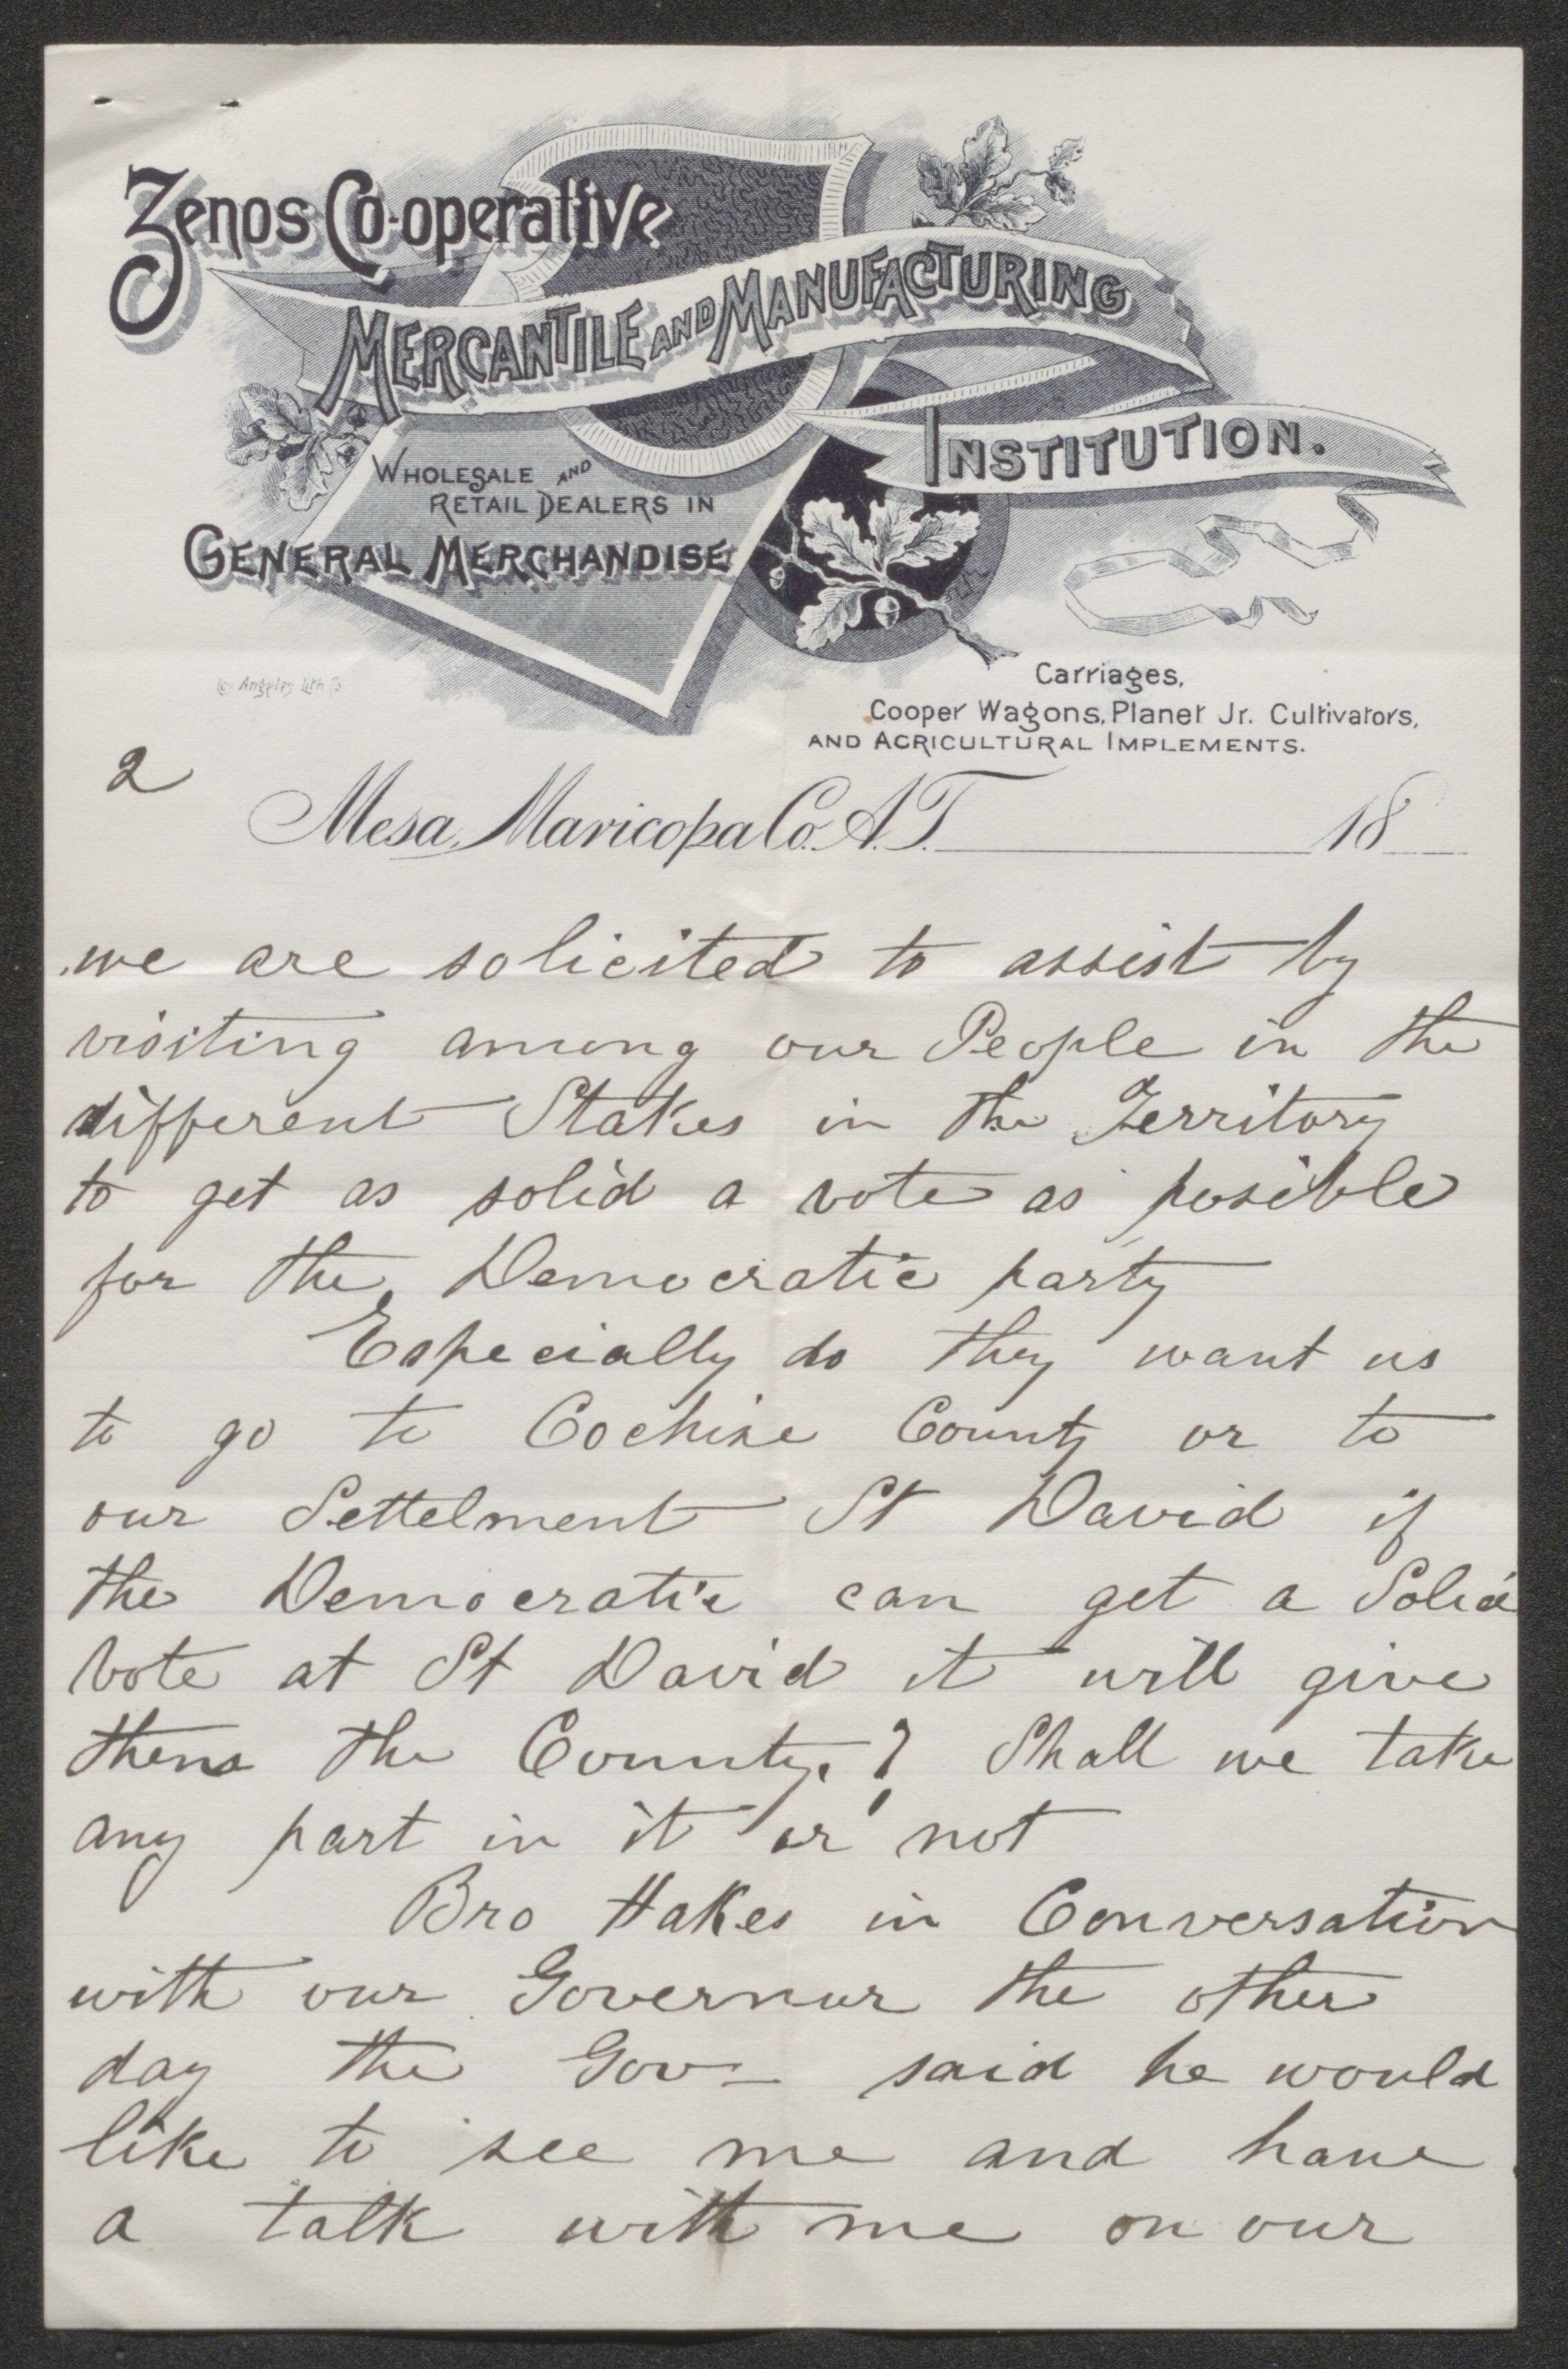 Zenos Co-operative
MERCANTILE AND MANUFACTURING
INSTITUTION.
WHOLESALE AND
RETAIL DEALERS IN
GENERAL MERCHANDISE
Los Angeles Lith Co
Carriages,
Cooper Wagons, Planet Jr. Cultivators,
AND AGRICULTURAL IMPLEMENTS.
2
Mesa, Maricopa Co. A.T. 18
we are solicited to assist by
visiting among our People in the
different Stakes in the Territory
to get as solid a vote as posible
for the Democratic party
Especially do they want us
to go to Cochise County or to
our Settelment St David if
the Democratic can get a Solid
vote at St David it will give
them the County.? Shall we take
any part in it or not
Bro Hakes in Conversation
with our Governur the other
day the Gov- said he would
like to see me and have
a talk with me on our